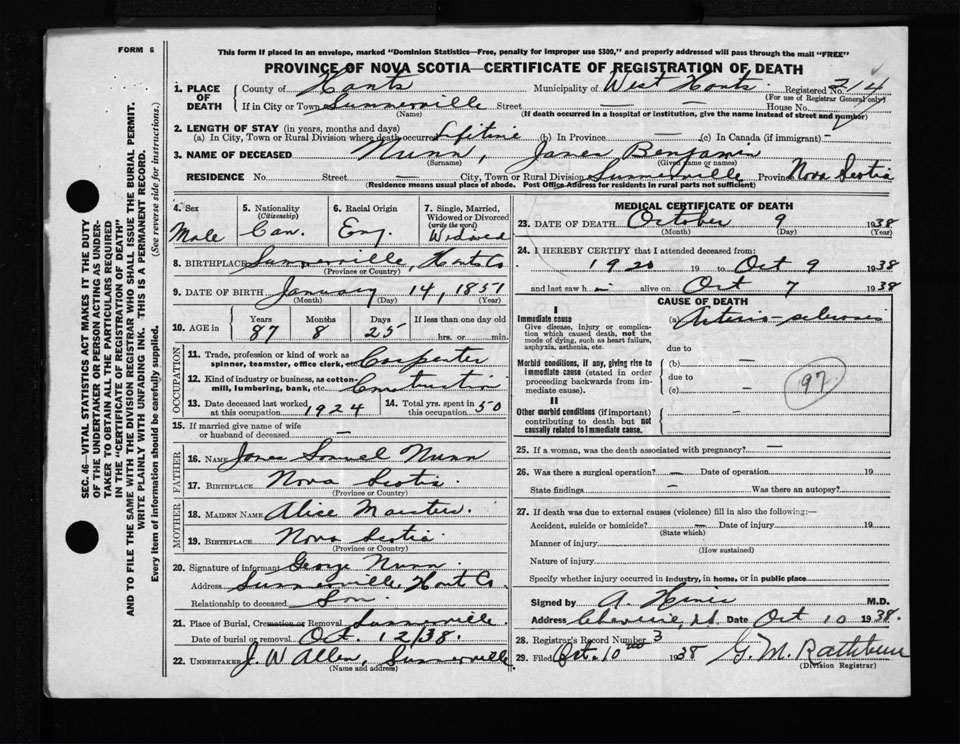 FORM 6
This form if placed in an envelope, marked "Dominion Statistics—Free, penalty for improper use $300," and properly addressed will pass through the mail "FREE"
PROVINCE OF NOVA SCOTIA—CERTIFICATE OF REGISTRATION OF DEATH
SEC. 46—VITAL STATISTICS ACT MAKES IT THE DUTY
OF THE UNDERTAKER OR PERSON ACTING AS UNDER-
TAKER TO OBTAIN ALL THE PARTICULARS REQUIRED
IN THE "CERTIFICATE OF REGISTRATION OF DEATH"
AND TO FILE THE SAME WITH THE DIVISION REGISTRAR WHO SHALL ISSUE THE BURIAL PERMIT.
WRITE PLAINLY WITH UNFADING INK. THIS IS A PERMANENT RECORD.
Every item of information should be carefully supplied. (See reverse side for instructions.)
1. PLACE OF DEATH County of Hants Municipality of West Hants Registered No. 214
(For use of Registrar General only)
If in City or Town Summerville Street — House No. —
(Name) (If death occurred in a hospital or institution, give the name instead of street and number)
2. LENGTH OF STAY (in years, months and days)
(a) In City, Town or Rural Division where death occurred Lifetime (b) In Province — (c) In Canada (if immigrant) —
3. NAME OF DECEASED Nunn, James Benjamin
(Surname) (Given name or names)
RESIDENCE No. Street — City, Town or Rural Division Summerville Province Nova Scotia
(Residence means usual place of abode. Post Office Address for residents in rural parts not sufficient)
4. Sex Male
5. Nationality (Citizenship) Can.
6. Racial Origin Eng.
7. Single, Married, Widowed or Divorced (write the word) Widowed
8. BIRTHPLACE Summerville, Hants Co
(Province or Country)
9. DATE OF BIRTH January 14, 1851
(Month) (Day) (Year)
10. AGE in Years 87 Months 8 Days 25 If less than one day old hrs. or min.
OCCUPATION
11. Trade, profession or kind of work as spinner, teamster, office clerk, etc. Carpenter
12. Kind of industry or business, as cotton-mill, lumbering, bank, etc. Construction
13. Date deceased last worked at this occupation 1924
14. Total yrs. spent in this occupation 50
15. If married give name of wife or husband of deceased —
FATHER
16. NAME James Samuel Nunn
17. BIRTHPLACE Nova Scotia
(Province or Country)
MOTHER
18. MAIDEN NAME Alice
19. BIRTHPLACE Nova Scotia
(Province or Country)
20. Signature of informant George Nunn
Address Summerville, Hants Co.
Relationship to deceased Son
21. Place of Burial, Cremation or Removal Summerville
Date of burial or removal Oct. 12/38.
22. UNDERTAKER J. W Allen, Summerville
(Name and address)
MEDICAL CERTIFICATE OF DEATH
23. DATE OF DEATH October 9 1938
(Month) (Day) (Year)
24. I HEREBY CERTIFY that I attended deceased from:
1920 19 to Oct 9 1938
and last saw him alive on Oct 7 1938
CAUSE OF DEATH
I
Immediate cause
Give disease, injury or complication which caused death, not the mode of dying, such as heart failure, asphyxia, asthenia, etc.
(a) Arterio-sclerosis
due to —
Morbid conditions, if any, giving rise to immediate cause (stated in order proceeding backwards from immediate cause).
(b) —
due to
(c) —
97
II
Other morbid conditions (if important) contributing to death but not causally related to immediate cause. —
25. If a woman, was the death associated with pregnancy? —
26. Was there a surgical operation? — Date of operation 19
State findings — Was there an autopsy?
27. If death was due to external causes (violence) fill in also the following:—
Accident, suicide or homicide? — Date of injury 19
(State which)
Manner of injury
(How sustained)
Nature of injury
Specify whether injury occurred in industry, in home, or in public place
Signed by A. M.D.
Address Date Oct 10 1938.
28. Registrar's Record Number 3
29. Filed Oct. 10 1938 G. M. Rathbun
(Division Registrar)